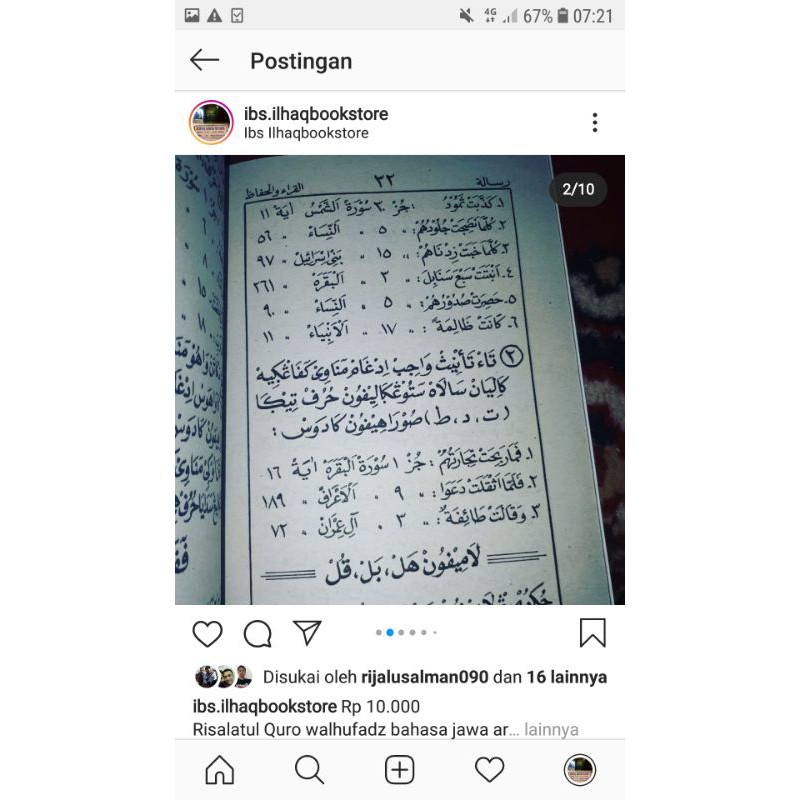 67% 07:21
4G
Postingan
ibs.ilhaqbookstore
Ibs Ilhaqbookstore
2/10
رسالة ٢٢ القراء والحفاظ
١. كَذَّبَتْ ثَمُوْدُ : جُزْ ٣٠ سُوْرَةْ اَلشَّمْسُ اٰيَةْ ١١
٢. كُلَّمَا نَضِجَتْ جُلُوْدُهُمْ : " ٥ " اَلنِّسَاءْ " ٥٦
٣. كُلَّمَا خَبَتْ زِدْنَاهُمْ : " ١٥ " بَنِيْ اِسْرَائِيْلْ " ٩٧
٤. اَنْبَتَتْ سَبْعَ سَنَابِلَ : " ٣ " اَلْبَقَرَهْ " ٢٦١
٥. حَصِرَتْ صُدُوْرُهُمْ : " ٥ " اَلنِّسَاءْ " ٩٠
٦. كَانَتْ ظَالِمَةً : " ١٧ " اَلْاَنْبِيَاءْ " ١١
٢ تَاءْ تَأْنِيْثْ وَاجِبْ اِدْغَامْ مَنَاوِيْ كَفَاڠْكِيهْ
كَالِيَانْ سَالَاهْ سَتُوْڠْكَالِيْفُوْنْ حُرُفْ تِيْكَا
(ت ، د ، ط) صُوْرَاهِيْفُوْنْ كَادَوْسْ :
١. فَمَا رَبِحَتْ تِجَارَتُهُمْ : جُزْ ١ سُوْرَةْ اَلْبَقَرَهْ اٰيَةْ ١٦
٢. فَلَمَّا اَثْقَلَتْ دَعَوَا : " ٩ " اَلْاَعْرَافْ " ١٨٩
٣. وَقَالَتْ طَائِفَةٌ : " ٣ " اٰلِ عِمْرَانْ " ٧٢
لَامِيْفُوْنْ هَلْ ، بَلْ ، قُلْ
Disukai oleh rijalusalman090 dan 16 lainnya
ibs.ilhaqbookstore Rp 10.000
Risalatul Quro walhufadz bahasa jawa ar... lainnya